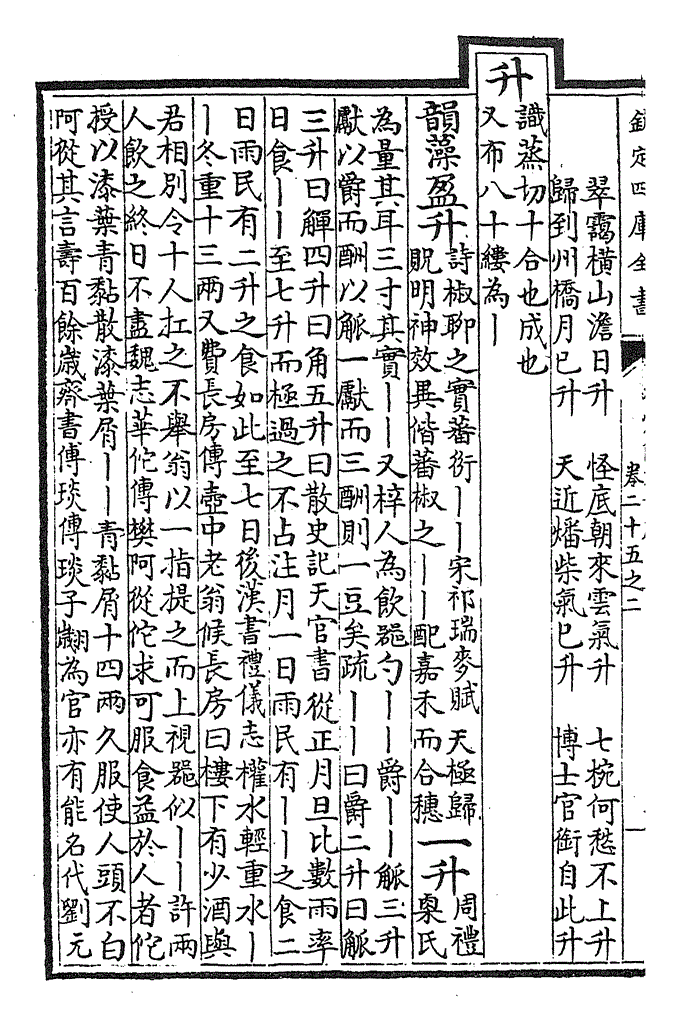 欽定四庫全書
卷二十五之二
一
翠靄橫山澹日升　怪底朝來雲氣升　七椀何愁不上升
歸到州橋月已升　天近燔柴氣已升　博士官銜自此升
升
識蒸切十合也成也
又布八十縷為丨
韻藻盈升
詩椒聊之實蕃衍丨丨宋祁瑞麥賦天極歸
貺明神效異偕蕃椒之丨丨配嘉禾而合穗
一升
周禮
㮚氏
為量其耳三寸其實丨丨又梓人為飲器勺丨丨爵丨丨觚三升
獻以爵而酬以觚一獻而三酬則一豆矣疏丨丨曰爵二升曰觚
三升曰觶四升曰角五升曰散史記天官書從正月旦比數雨率
日食丨丨至七升而極過之不占注月一日雨民有丨丨之食二
日雨民有二升之食如此至七日後漢書禮儀志權水輕重水丨
丨冬重十三兩又費長房傳壺中老翁候長房曰樓下有少酒與
君相別令十人扛之不舉翁以一指提之而上視器似丨丨許兩
人飲之終日不盡魏志華佗傳樊阿從佗求可服食益於人者佗
授以漆葉青黏散漆葉屑丨丨青黏屑十四兩久服使人頭不白
阿從其言壽百餘歲齊書傅琰傳琰子翽為官亦有能名代劉元